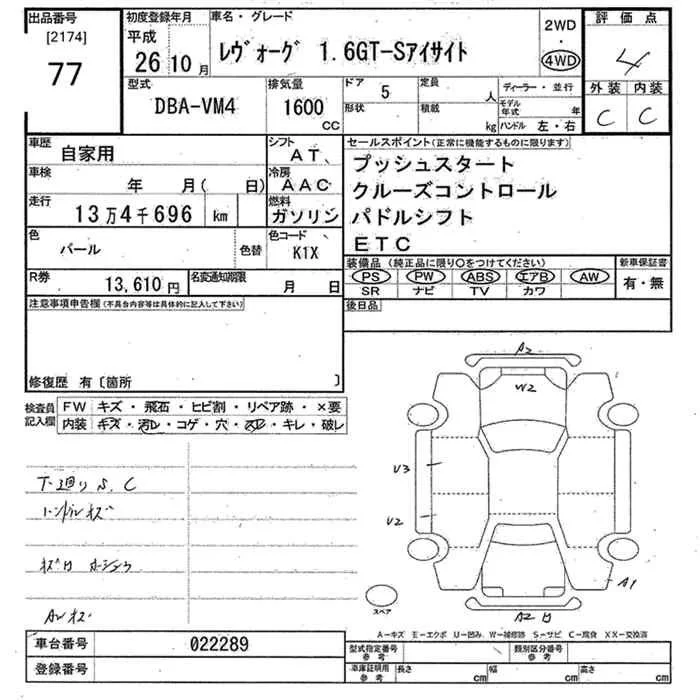 出品番号
[2174]
77
初度登録年月
平成
26 10 月
車名・グレード
レヴォーグ 1.6GT-Sアイサイト
2WD
・
4WD
評価点
4
外装 内装
C C
型式
DBA-VM4
排気量
1600
CC
ドア 5
形状
定員 人
積載 kg
ディーラー・並行
モデル年式 年
ハンドル 左・右
車歴
自家用
シフト
AT、
車検
年 月( 日)
冷房
AAC
走行
13万4千696 km
燃料
ガソリン
色
パール
色替
色コード
K1X
R券
13,610円
名変通知期限
月 日
セールスポイント(正常に機能するものに限ります)
プッシュスタート
クルーズコントロール
パドルシフト
ETC
装備品 (純正品に限り○をつけてください)
PS PW ABS エアB AW
SR ナビ TV カワ
新車保証書
有・無
後日品
注意事項申告欄(不具合内容等は具体的に記入して下さい)
修復歴 有〔箇所 〕
検査員
記入欄
FW キズ・飛石・ヒビ割・リペア跡・×要
内装 キズ・汚レ・コゲ・穴・スレ・キレ・破レ
下廻り S、C
ハンドルキズ
AWキズ
A2
W2
U3
U2
A1
A2
スペア
A-キズ E-エクボ U-凹み W-補修跡 S-サビ C-腐食 XX-交換済
車台番号 022289
登録番号
型式指定番号
参考
類別区分番号
参考
車庫証明用
参考
長さ cm
幅 cm
高さ cm